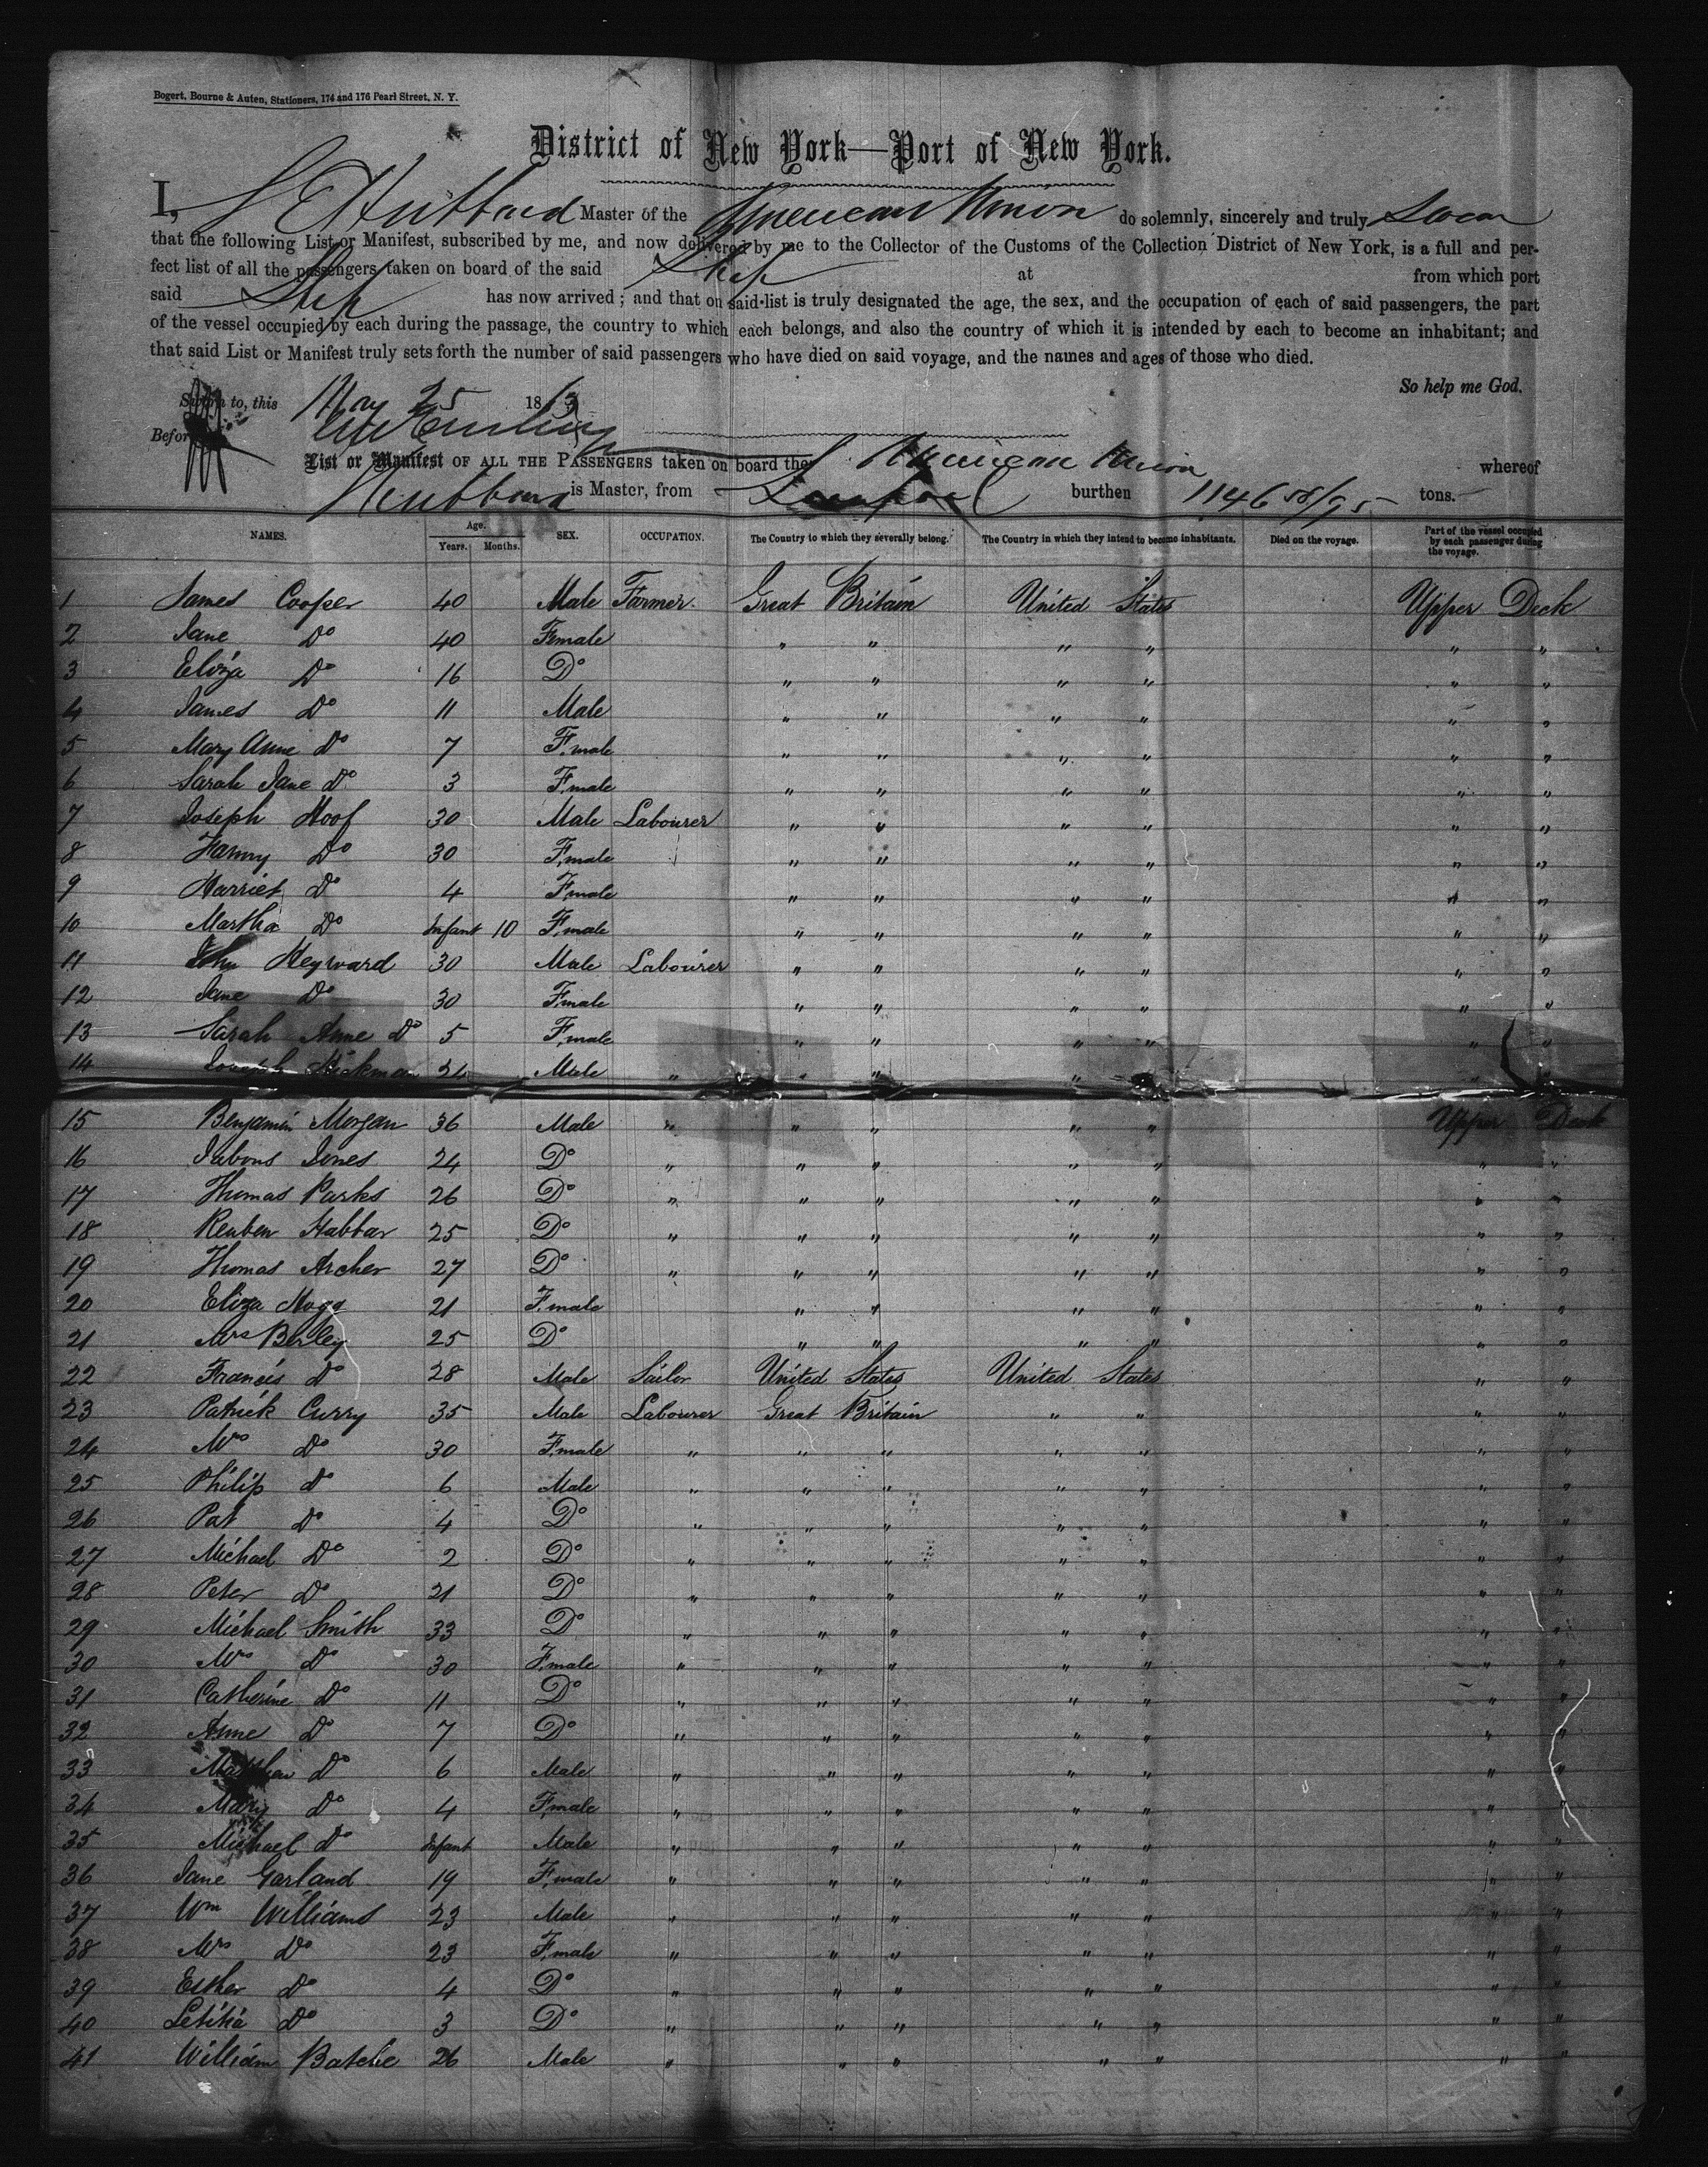 Bogert, Bourne & Auten, Stationers, 174 and 176 Pearl Street, N. Y.
District of New York—Port of New York.
I, S E Hubbard Master of the American Union do solemnly, sincerely and truly Swear
that the following List or Manifest, subscribed by me, and now delivered by me to the Collector of the Customs of the Collection District of New York, is a full and per-
fect list of all the passengers taken on board of the said Ship at from which port
said Ship has now arrived; and that on said list is truly designated the age, the sex, and the occupation of each of said passengers, the part
of the vessel occupied by each during the passage, the country to which each belongs, and also the country of which it is intended by each to become an inhabitant; and
that said List or Manifest truly sets forth the number of said passengers who have died on said voyage, and the names and ages of those who died.
So help me God.
Sworn to, this May 25 1863
Before
List or Manifest OF ALL THE PASSENGERS taken on board the American Union whereof
Hubbard is Master, from Liverpool burthen 1146 58/95 tons.
NAMES. Age. Years. Months. SEX. OCCUPATION. The Country to which they severally belong. The Country in which they intend to become inhabitants. Died on the voyage. Part of the vessel occupied by each passenger during the voyage.
1 James Cooper 40 Male Farmer Great Britain United States Upper Deck
2 Jane Do 40 Female " " " " " "
3 Eliza Do 16 Do " " " " " "
4 James Do 11 Male " " " " " "
5 Mary Anne Do 7 Female " " " " " "
6 Sarah Jane Do 3 Female " " " " " "
7 Joseph Hoof 30 Male Labourer " " " " " "
8 Fanny Do 30 Female " " " " " "
9 Harriet Do 4 Female " " " " " "
10 Martha Do Infant 10 Female " " " " " "
11 John Heyward 30 Male Labourer " " " " " "
12 Jane Do 30 Female " " " " " "
13 Sarah Anne Do 5 Female " " " " " "
14 Joseph Hickman Male " " " " "
15 Benjamin Morgan 36 Male " " " " " Upper Deck
16 Jones 24 Do " " " " " " "
17 Thomas Parks 26 Do " " " " " " "
18 Reuben Habbar 25 Do " " " " " " "
19 Thomas Archer 27 Do " " " " " " "
20 Eliza Hogg 21 Female " " " " " "
21 Mrs Berley 25 Do " " " " " "
22 Francis Do 28 Male Sailor United States United States " "
23 Patrick Curry 35 Male Labourer Great Britain " " " "
24 Mrs Do 30 Female " " " " " " "
25 Philip do 6 Male " " " " " " "
26 Pat Do 4 Do " " " " " " "
27 Michael Do 2 Do " " " " " " "
28 Peter Do 21 Do " " " " " " "
29 Michael Smith 33 Do " " " " " " "
30 Mrs Do 30 Female " " " " " " "
31 Catherine Do 11 Do " " " " " " "
32 Anne Do 7 Do " " " " " " "
33 Matthew Do 6 Male " " " " " " "
34 Mary Do 4 Female " " " " " " "
35 Michael Do Infant Male " " " " " " "
36 Jane Garland 19 Female " " " " " " "
37 Wm Williams 23 Male " " " " " " "
38 Mrs Do 23 Female " " " " " " "
39 Esther Do 4 Do " " " " " " "
40 Letitia Do 3 Do " " " " " " "
41 William Batche 26 Male " " " " " " "